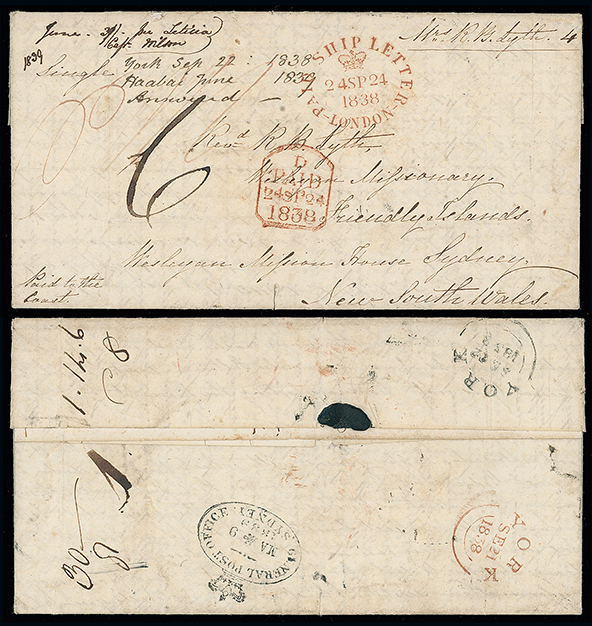 June. 3/. per Letitia
Capt. Wilson
1839
Mrs. R. B. Lyth. 4
Single York Sep 22: 1838
Haabai June 1839
Answered —
PAID SHIP LETTER
24SP24
1838
LONDON
6
Revd. R. B. Lyth,
D
PAID
24SP24
1838
Wesleyan Missionary,
Friendly Islands.
Wesleyan Mission House Sydney,
New South Wales.
Paid to the
Coast
1.14.6
8
YORK
30
GENERAL POST OFFICE
SYDNEY
MA 9
1839
YORK
SE 21
1838